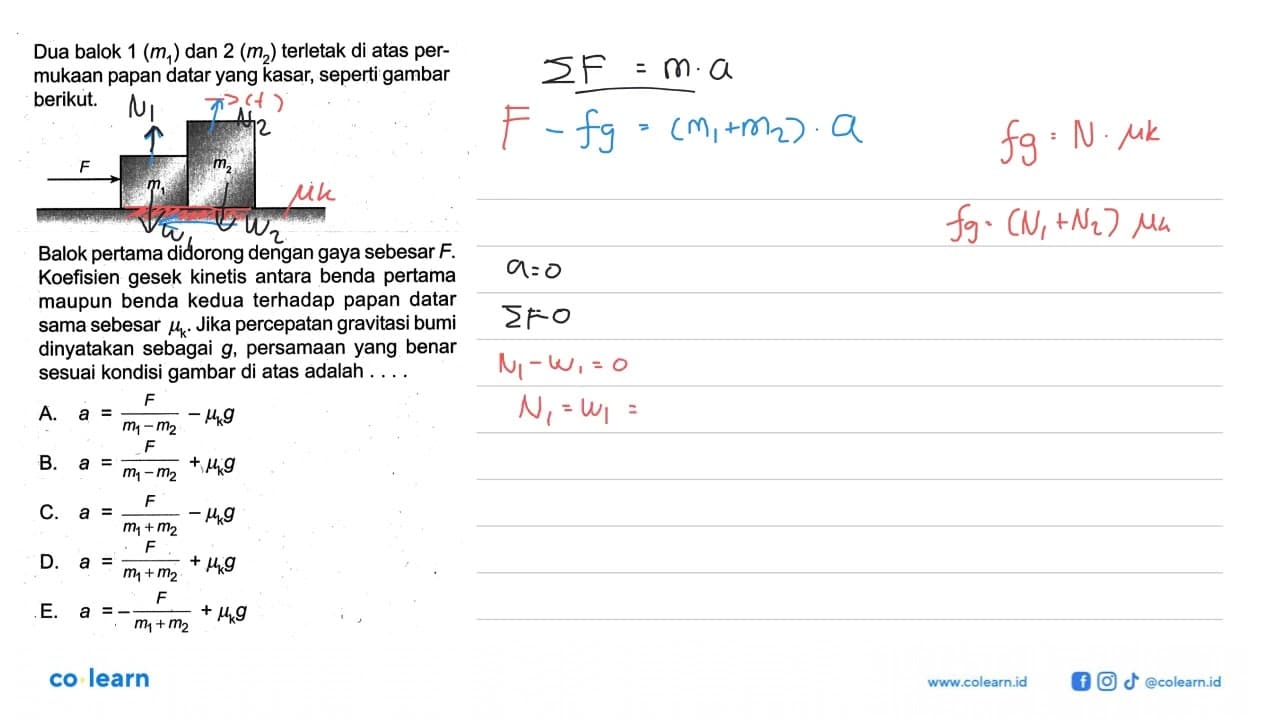 Dua balok 1 (m₁) dan 2 (m₂) terletak di atas per-
mukaan papan datar yang kasar, seperti gambar
berikut.
N₁
→(+)
N₂
F
m₁
m₂
μk
W₁
W₂
Balok pertama didorong dengan gaya sebesar F.
Koefisien gesek kinetis antara benda pertama
maupun benda kedua terhadap papan datar
sama sebesar μₖ. Jika percepatan gravitasi bumi
dinyatakan sebagai g, persamaan yang benar
sesuai kondisi gambar di atas adalah . . . .
A. a = F/(m₁ − m₂) − μₖg
B. a = F/(m₁ − m₂) + μₖg
C. a = F/(m₁ + m₂) − μₖg
D. a = F/(m₁ + m₂) + μₖg
E. a = −F/(m₁ + m₂) + μₖg
ΣF = m · a
F − fg = (m₁+m₂) · a
fg = N · μk
fg = (N₁ + N₂) μk
a = 0
ΣF=0
N₁ − W₁ = 0
N₁ = W₁ =
co learn
www.colearn.id
@colearn.id